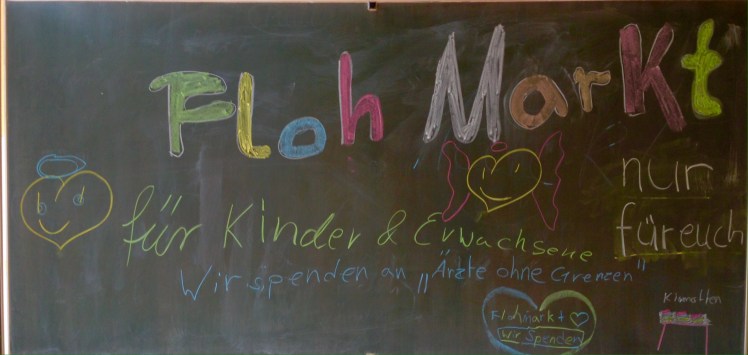 Floh Markt
nur
für euch
für Kinder & Erwachsene
Wir spenden an „Ärzte ohne Grenzen"
Flohmarkt
Wir Spenden